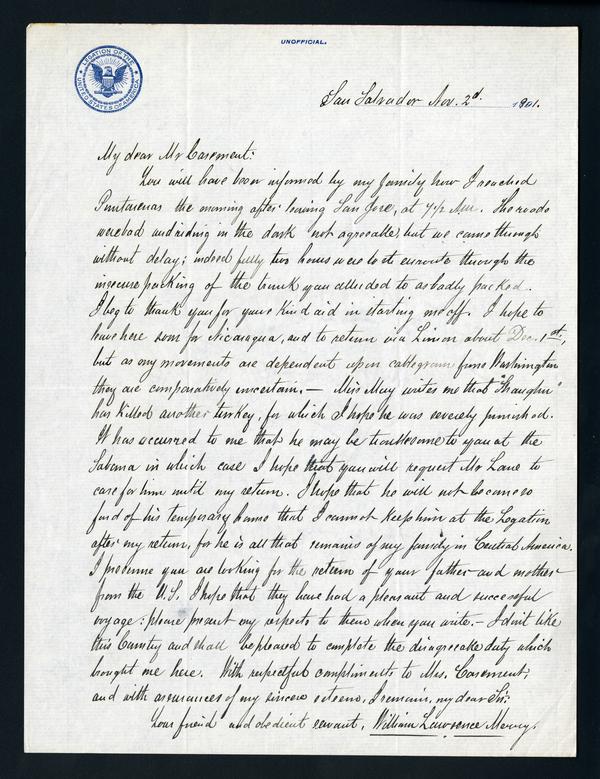 LEGATION OF THE
UNITED STATES OF AMERICA
UNOFFICIAL.
San Salvador Nov. 2d. 1901.
My dear Mr Casement:
You will have been informed by my family how I reached
Puntarenas the morning after leaving San Jose, at 7 1/2 A.M. The roads
were bad and riding in the dark "not agreeable", but we came through
without delay; indeed fully two hours were lost enroute through the
insecure packing of the trunk you alluded to as badly packed.
I beg to thank you for your kind aid in starting me off. I hope to
leave here soon for Nicaragua, and to return via Limon about Dec. 1st,
but as my movements are dependent upon cablegrams from Washington
they are comparatively uncertain. — Miss May writes me that
has killed another turkey, for which I hope he was severely punished.
It has occurred to me that he may be troublesome to you at the
Sabana in which case I hope that you will request Mr Lane to
care for him until my return. I hope that he will not become so
fond of his temporary home that I cannot keep him at the Legation
after my return, for he is all that remains of my family in Central America.
I presume you are looking for the return of your father and mother
from the U.S. I hope that they have had a pleasant and successful
voyage: please present my respects to them when you write. — I don't like
this Country and shall be pleased to complete the disagreeable duty which
brought me here. With respectful compliments to Mrs. Casement,
and with assurances of my sincere esteem, I remain, my dear Sir:
Your friend and obedient servant, William Lawrence Merry.